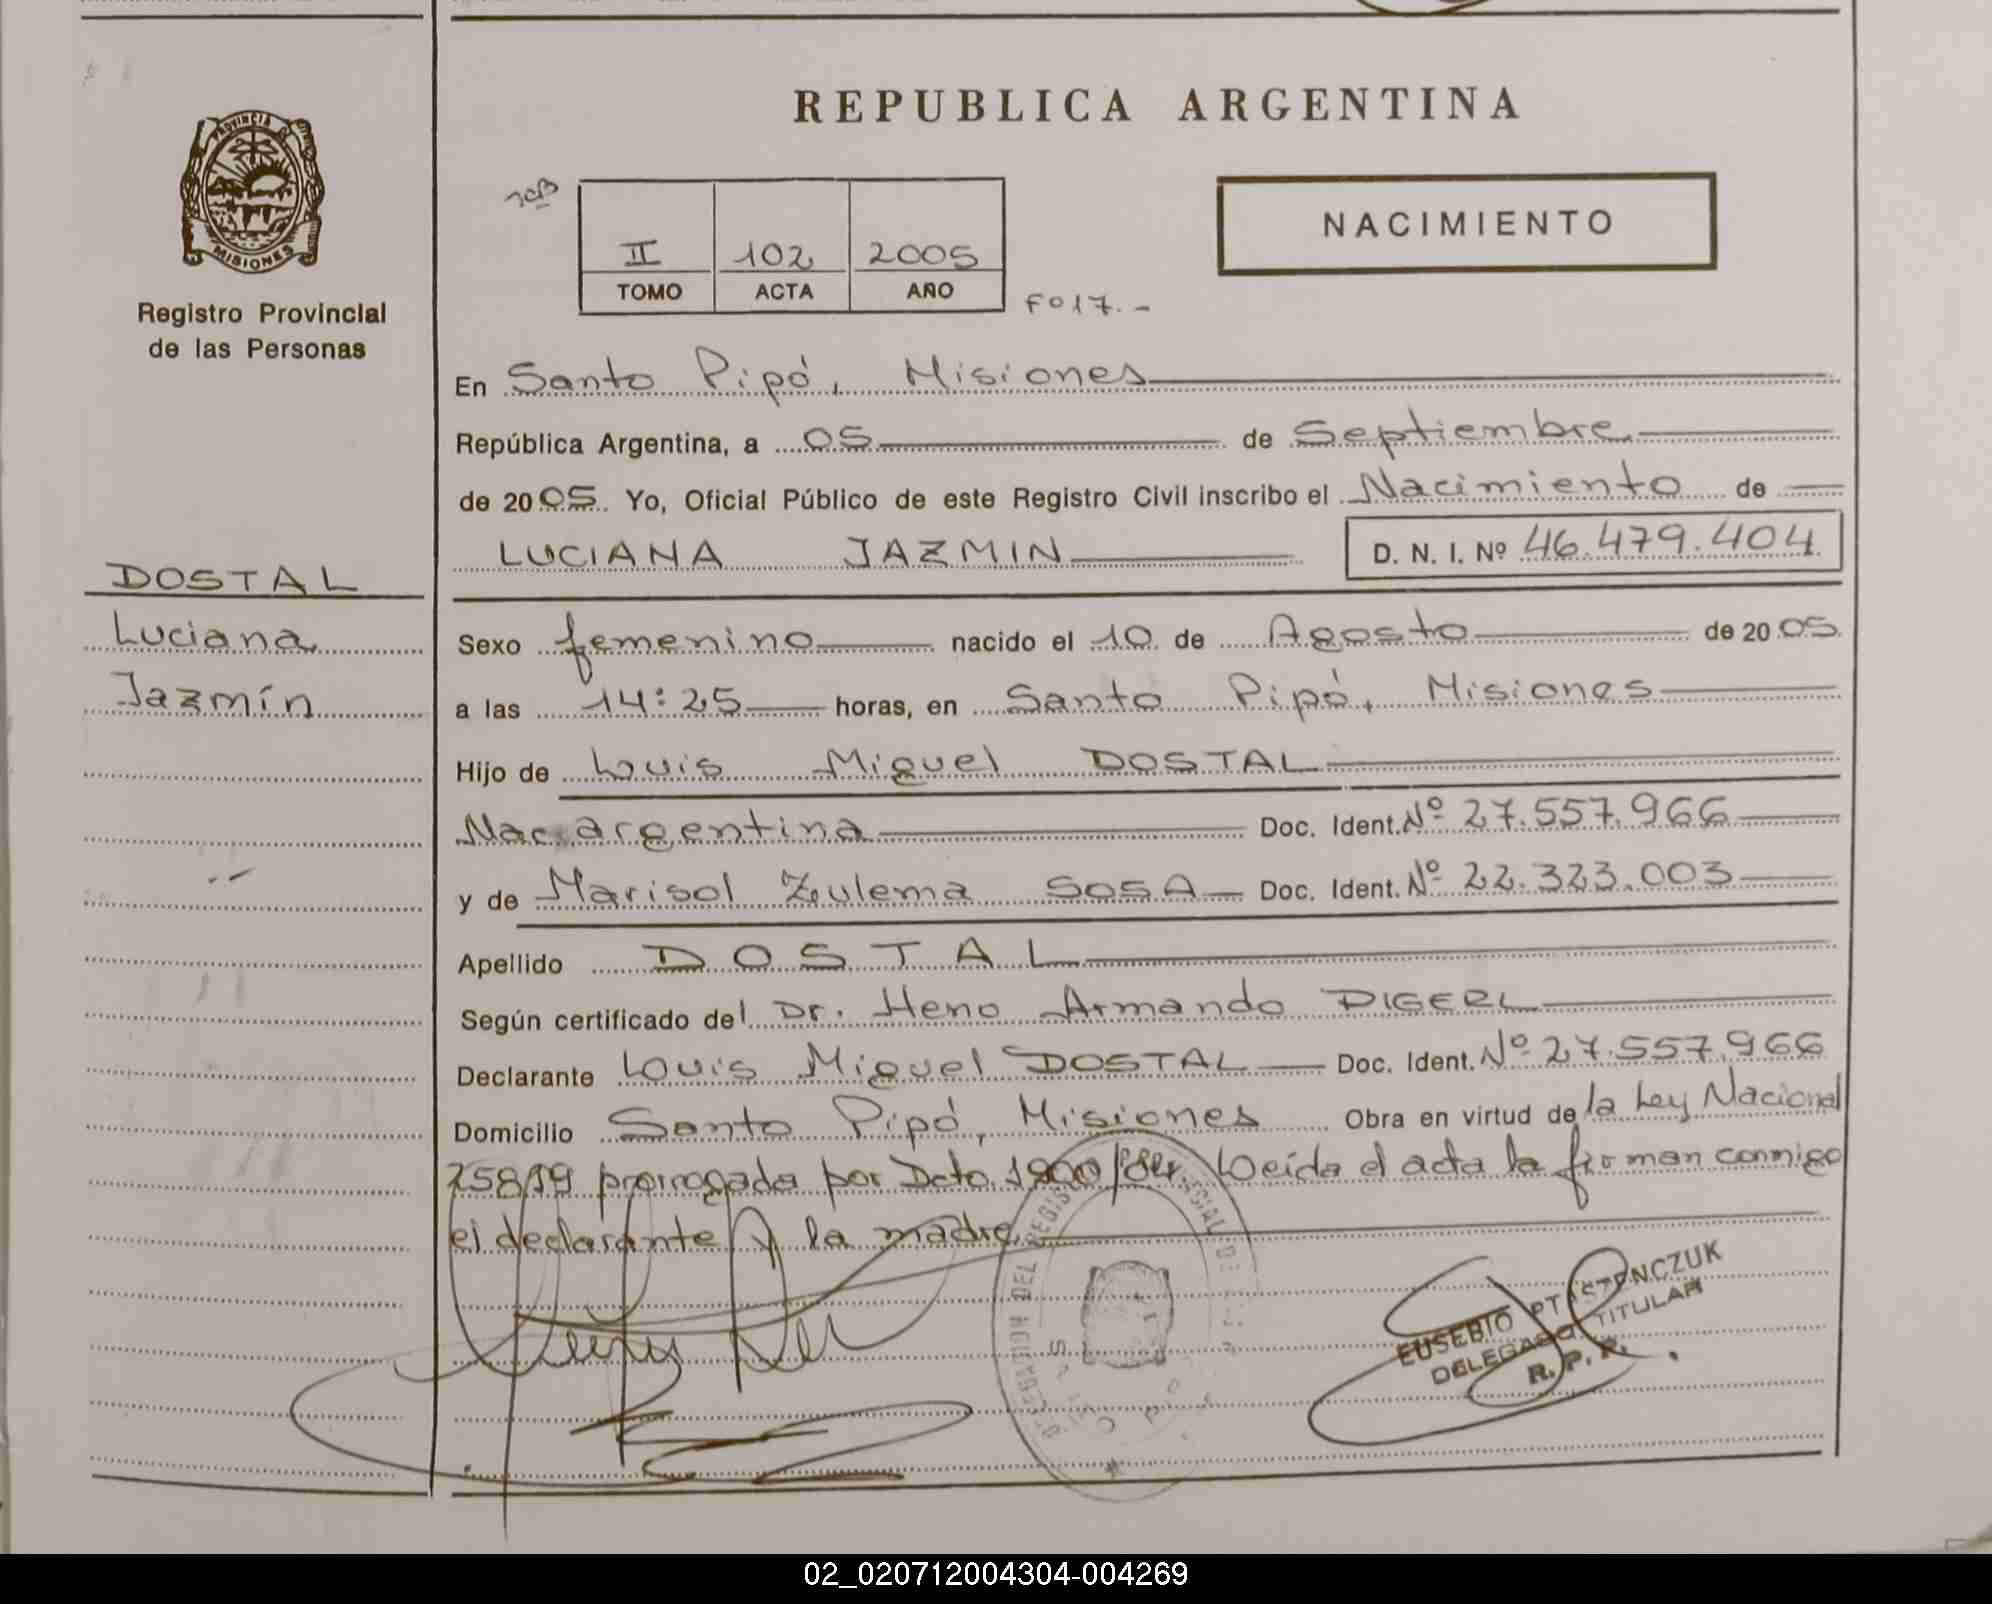 REPUBLICA ARGENTINA
PROVINCIA DE
MISIONES
Registro Provincial
de las Personas
II 102 2005
TOMO ACTA AÑO
Fo 17.-
NACIMIENTO
En Santo Pipó, Misiones
República Argentina, a 05 de Septiembre
de 2005. Yo, Oficial Público de este Registro Civil inscribo el Nacimiento de
LUCIANA JAZMIN D. N. I. Nº 46.479.404
DOSTAL
Luciana
Jazmín
Sexo femenino nacido el 10 de Agosto de 2005.
a las 14:25 horas, en Santo Pipó, Misiones
Hijo de Louis Miguel DOSTAL
Nac. argentina Doc. Ident. Nº 27.557.966
y de Marisol Zulema SOSA Doc. Ident. Nº 22.323.003
Apellido DOSTAL
Según certificado del Dr. Heno Armando DIGERL
Declarante Louis Miguel DOSTAL Doc. Ident. Nº 27.557.966
Domicilio Santo Pipó, Misiones Obra en virtud de la Ley Nacional
25819 prorrogada por Dcto. Leída el acta la firman conmigo
el declarante y la madre
DELEGACION DEL REGISTRO PROVINCIAL DE
EUSEBIO PTASZENCZUK
DELEGADO TITULAR
R. P. P.
02_020712004304-004269